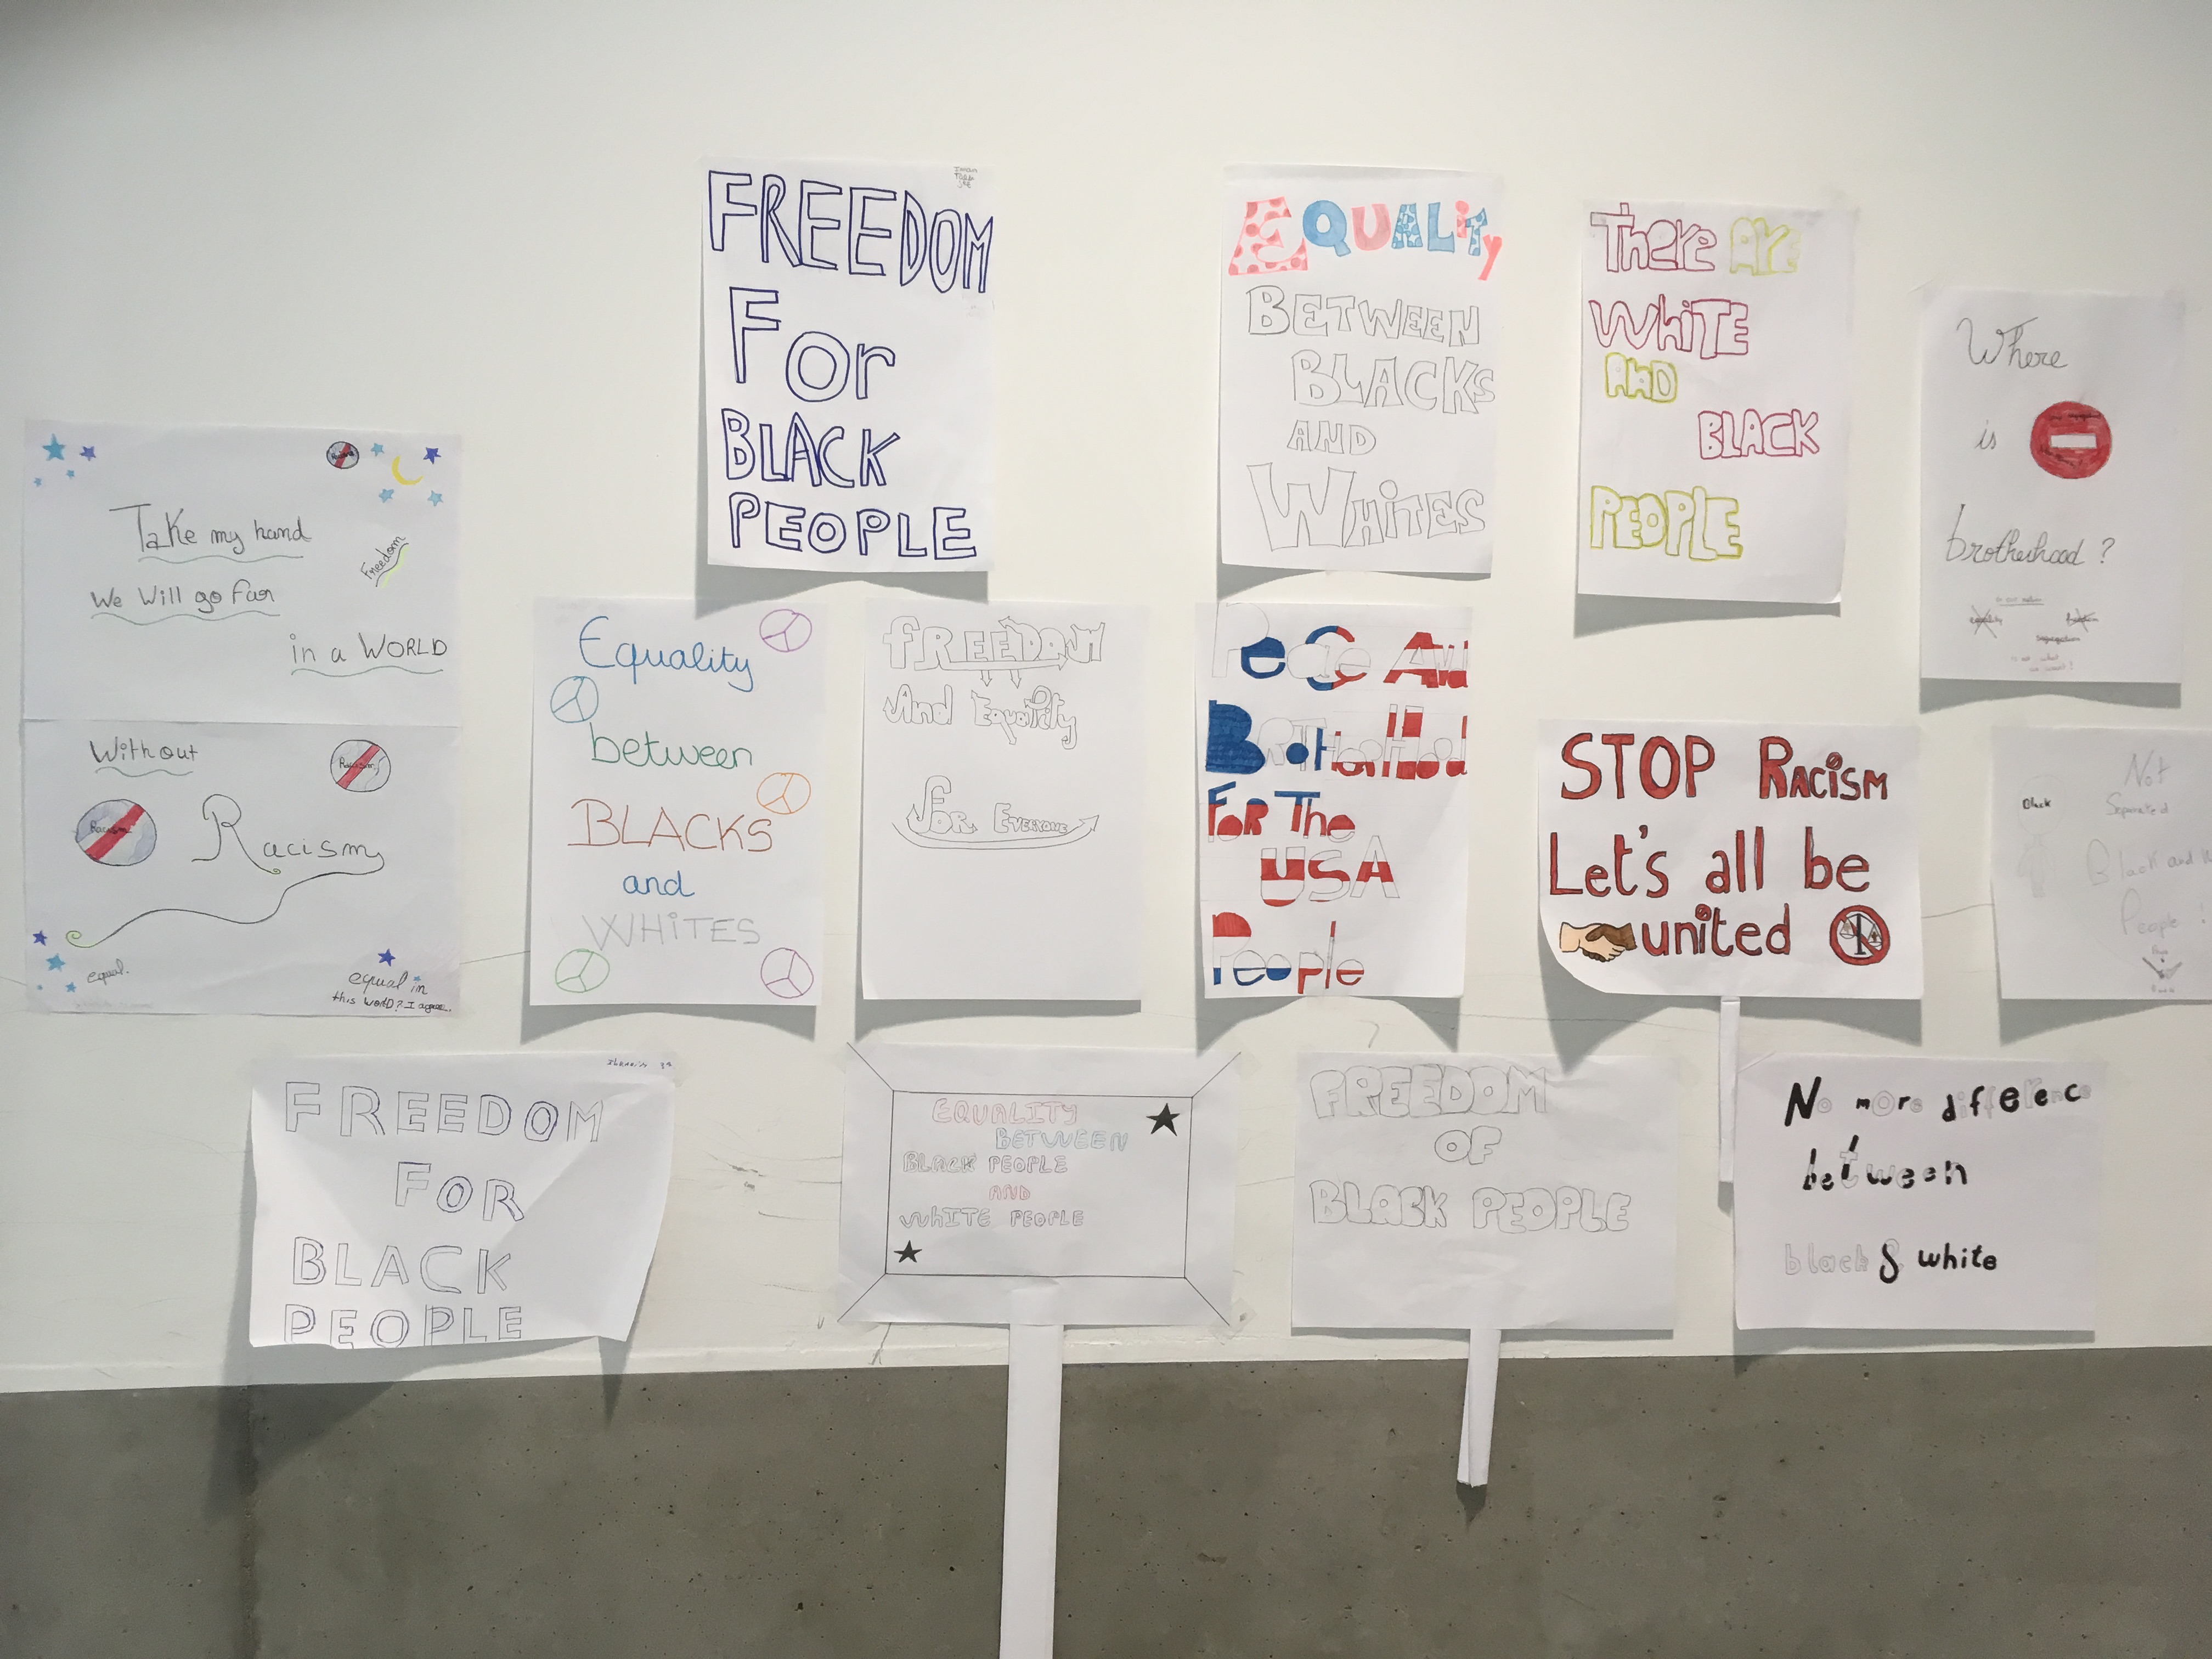 FREEDOM
For
BLACK
PEOPLE
EQUALity
BETWEEN
BLACKS
AND
WHiTES
There Are
WhiTE
AND
BLACK
PEOPLE
Where
is
brotherhood ?
Take my hand
We Will go far
in a WORLD
Freedom
Without
Racism
Racism
Racism
equal.
equal in
this world? I agree.
Equality
between
BLACKS
and
WHiTES
fREEDOM
And Equality
for Everyone
Peace And
BrotherHood
FoR The
USA
People
STOP Racism
Let's all be
united
Black
Not
Separated
Black and
People !
FREEDOM
FOR
BLACK
PEOPLE
EQUALITY
BETWEEN
BLACK PEOPLE
AND
WhITE PEOPLE
FREEDOM
OF
BLACK PEOPLE
No more difference
between
black & white